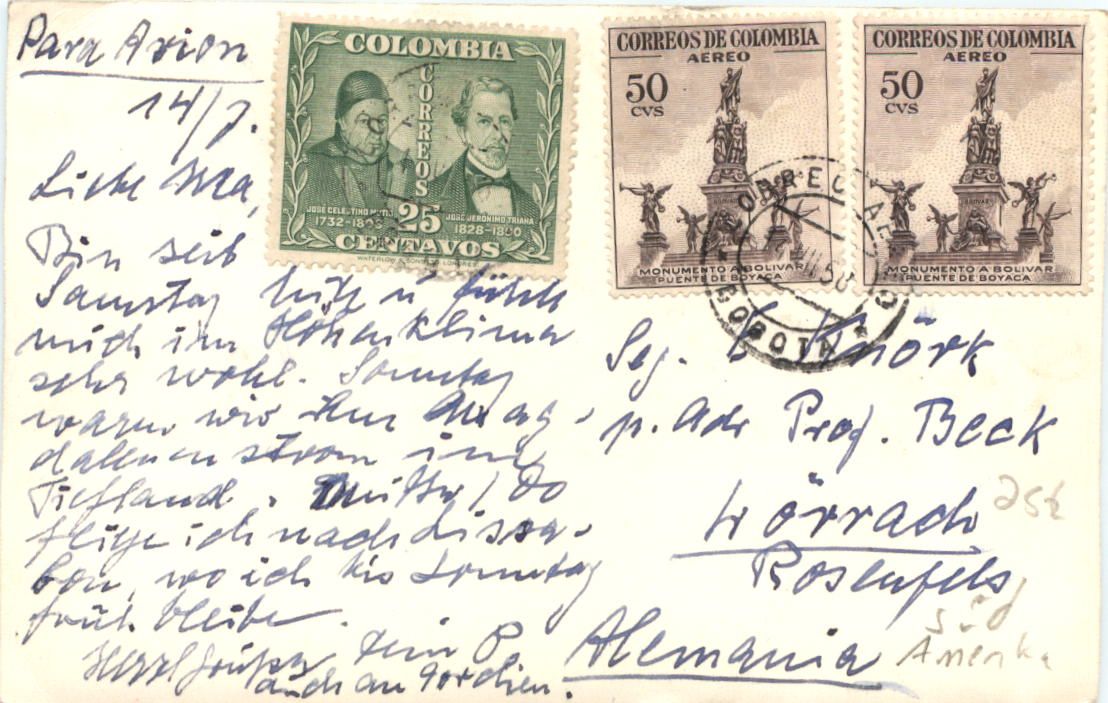 Para Avion
14/7.
COLOMBIA
CORREOS
JOSÉ CELESTINO MUTIS
1732-1808
25
JOSÉ JERONIMO TRIANA
1828-1890
CENTAVOS
WATERLOW & SONS LTD. LONDRES
CORREOS DE COLOMBIA
AEREO
50
CVS
BOLIVAR
MONUMENTO A BOLIVAR
PUENTE DE BOYACA
CORREOS DE COLOMBIA
AEREO
50
CVS
BOLIVAR
MONUMENTO A BOLIVAR
PUENTE DE BOYACA
BOGOTA
Liebe
Bin seit
Samstag hier u. fühle
mich im Höhenklima
sehr wohl. Sonntag
waren wir am Mag-
dalenenstrom im
Tiefland. Do
fliege ich nach Lissa-
bon, wo ich bis Sonntag
früh bleibe.
Herzl Grüße Dein P
auch an
Knörk
p. Adr Prof. Beck
Lörrach
Rosenfels
Alemania
Süd
Amerika